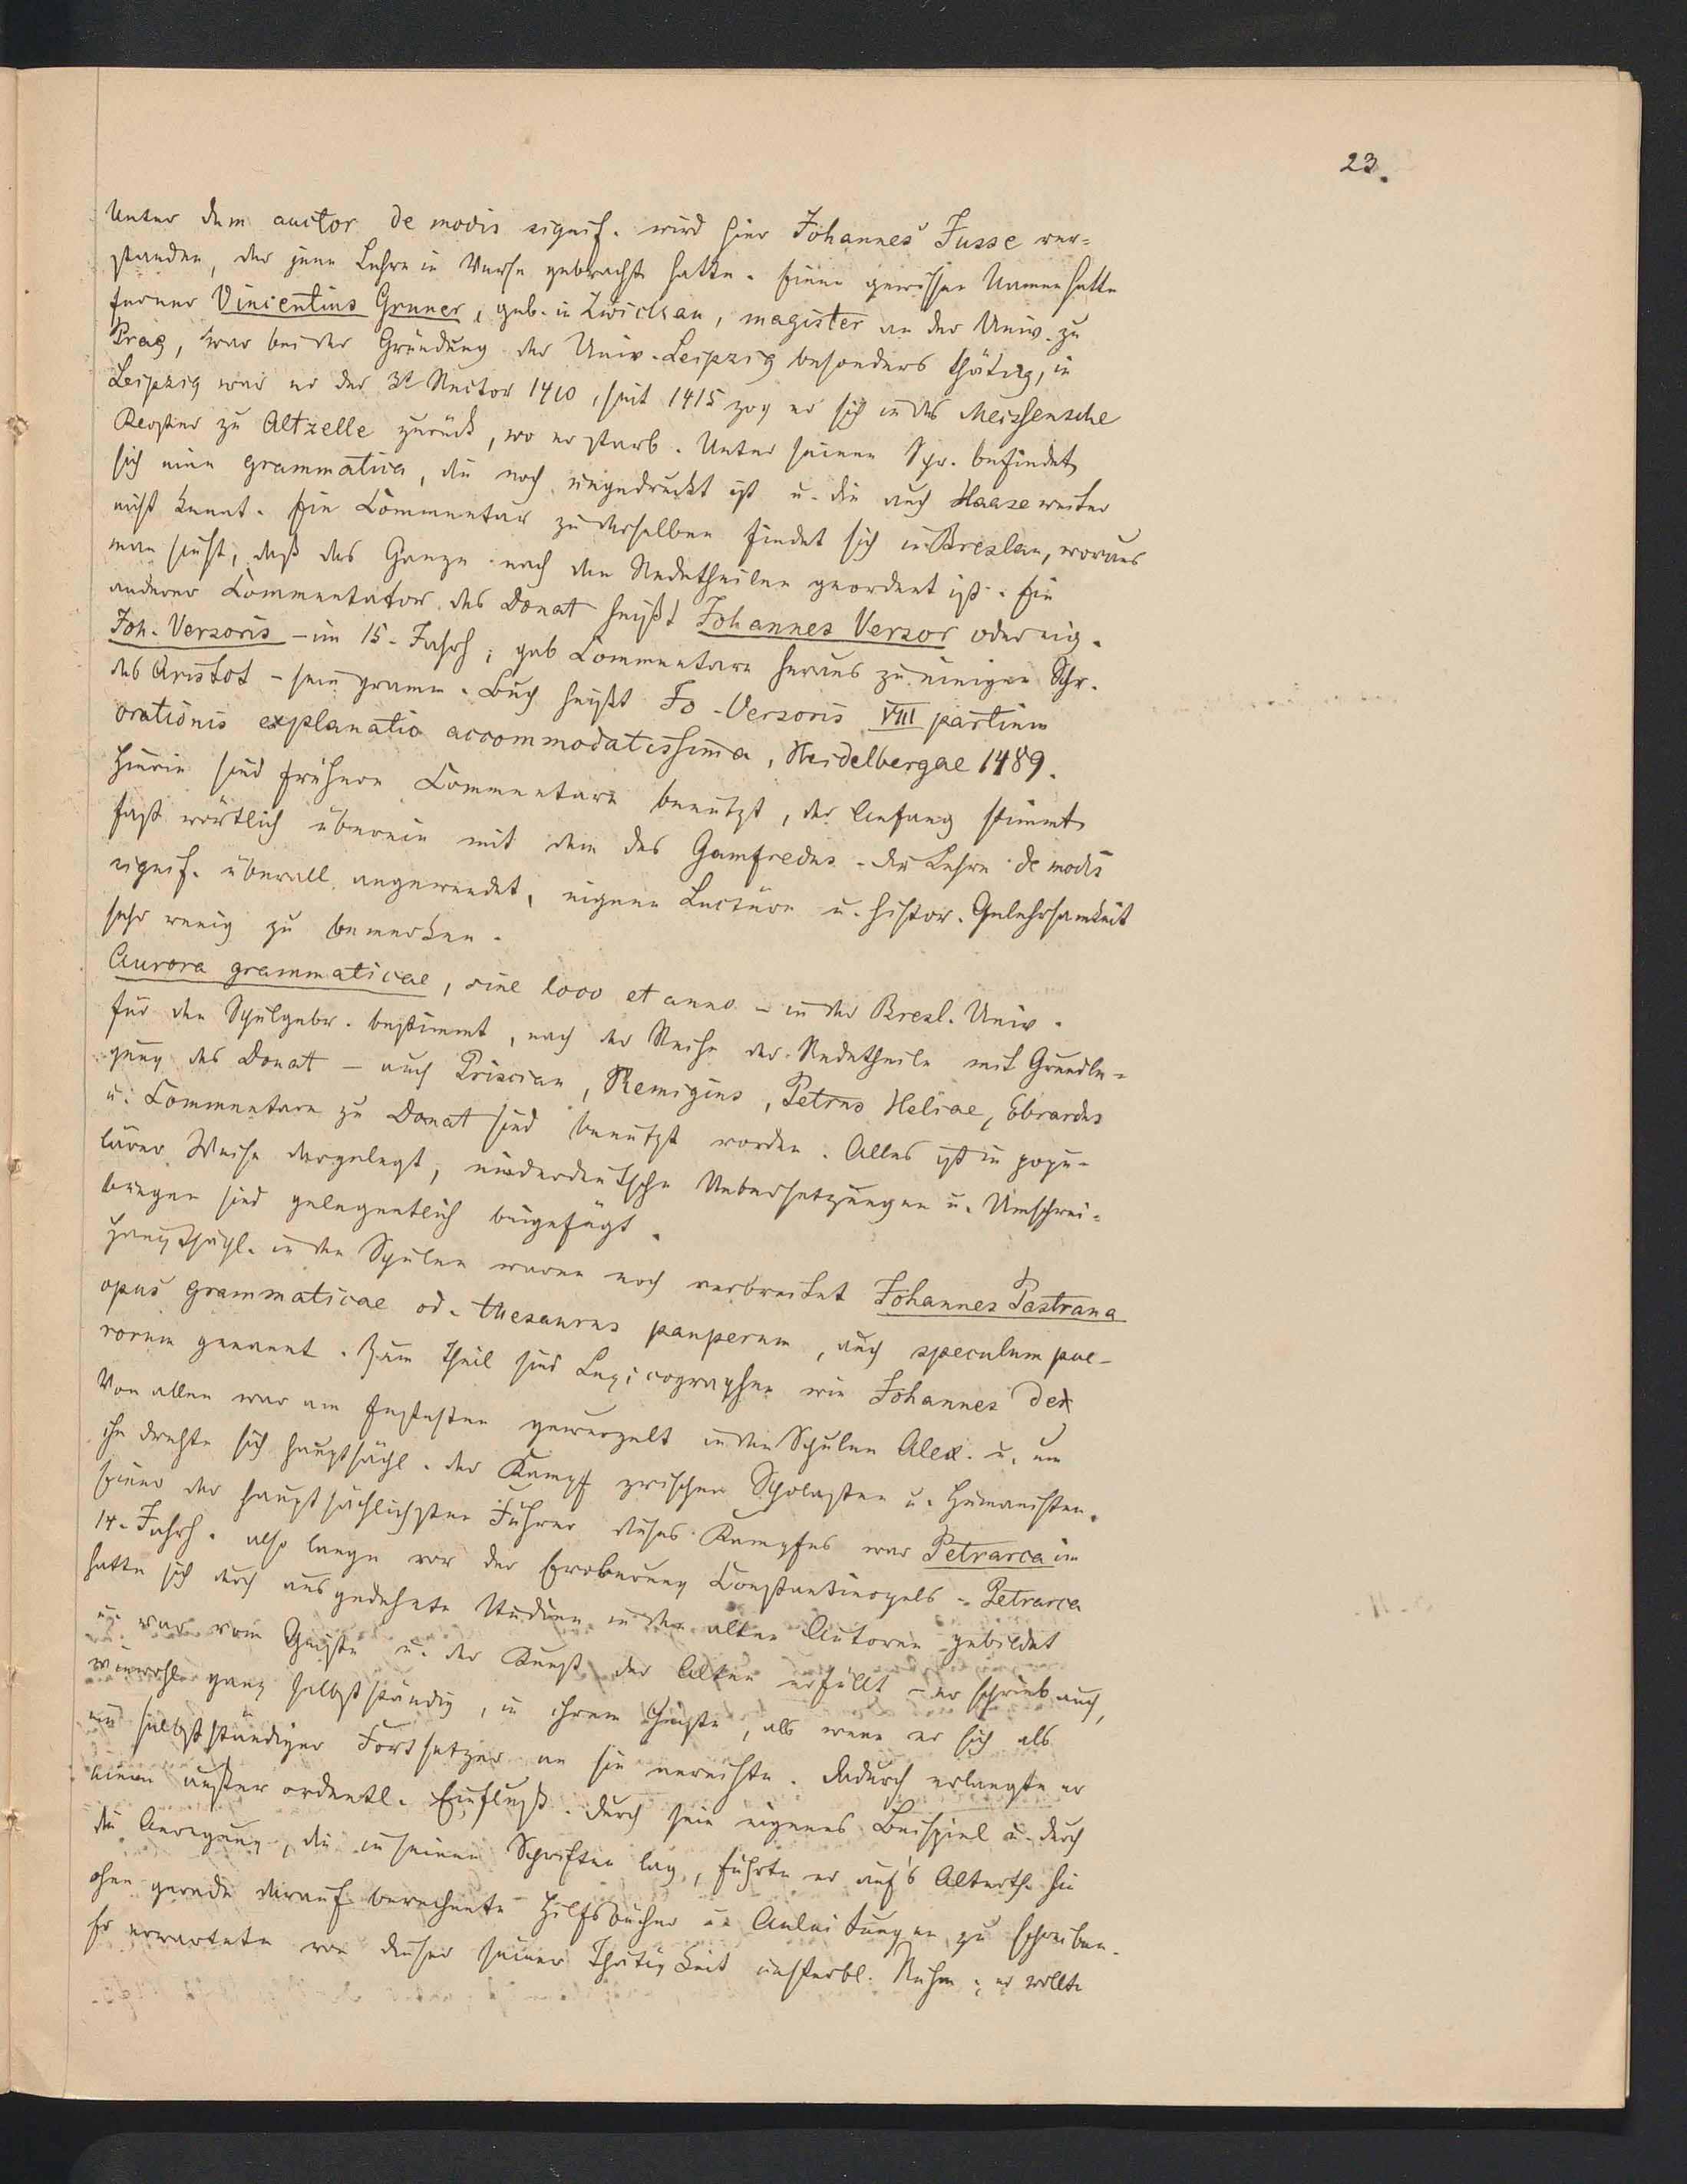 23.
Unter dem auctor de modis signif. wird hier Johannes Jusse ver-
standen, der jene Lehre in Verse gebracht hatte. Einen gewissen Namen hatte
ferner Vincentius Gruner, geb. in Zwickau, magister an der Univ. zu
Prag, war bei der Gründung der Univ. Leipzig besonders thätig, in
Leipzig war er der 3te Rector 1410, seit 1415 zog er sich in das Meissensche
Kloster zu Altzelle zurück, wo er starb. Unter seinen Schr. befindet
sich eine grammatica, die noch ungedruckt ist u. die auch Haase weiter
nicht kennt. Ein Commentar zu derselben findet sich in Breslau, woraus
man sieht, daß das Ganze nach den Redetheilen geordnet ist. Ein
anderer Commentator des Donat heißt Johannes Versor oder eig.
Joh. Versoris – im 15. Jahrh; gab Commentare heraus zu einigen Schr.
des Aristot – sein gramm. Buch heißt Jo. Versoris VIII partium
orationis explanatio accommodatissima, Heidelbergae 1489.
Hierin sind frühere Commentare benutzt, der Anfang stimmt
fast wörtlich überein mit dem des Gamfredus – die Lehre de modis
signif. überall angewendet, eigene Lectüre u. histor. Gelehrsamkeit
sehr wenig zu bemerken.
Aurora grammaticae, sine loco et anno – in der Bresl. Univ.
für den Schulgebr. bestimmt, nach der Reihe der Redetheile mit Grundle-
gung des Donat – auch Priscian, Remigius, Petrus Heliae, Ebrardus
u. Commentare zu Donat sind benutzt worden. Alles ist in popu-
lärer Weise dargelegt, niederdeutsche Uebersetzungen u. Umschrei-
bungen sind gelegentlich beigefügt.
Hauptsächl. in den Schulen waren noch verbreitet Johannes Pastrana
opus grammaticae od. thesaurus pauperum, auch speculum pue-
rorum genannt. Zum Theil sind Lexicographen wie Johannes de
Von allen war am festesten gewurzelt in den Schulen Alex. u. um
ihn drehte sich hauptsächl. der Kampf zwischen Scholasten u. Humanisten.
Einer der hauptsächlichsten Führer dieses Kampfes war Petrarca im
14. Jahrh. also lange vor der Eroberung Constantinopels – Petrarca
hatte sich durch ausgedehnte Studien in den alten Autoren gebildet
u. war vom Geiste u. der Kunst der Alten erfüllt – er schrieb auch,
wiewohl ganz selbstständig, in ihrem Geiste, als wenn er sich als
ein selbstständiger Fortsetzer an sie anreihte. Dadurch erlangte er
einen außerordentl. Einfluß. Durch sein eigenes Beispiel u. durch
die Anregung, die in seinen Schriften lag, führte er auf's Alterth. hin
ohne gerade darauf berechnete Hilfsbücher u. Anleitungen zu schreiben.
Er erwartete von dieser seiner Thätigkeit unsterbl. Ruhm; er wollte